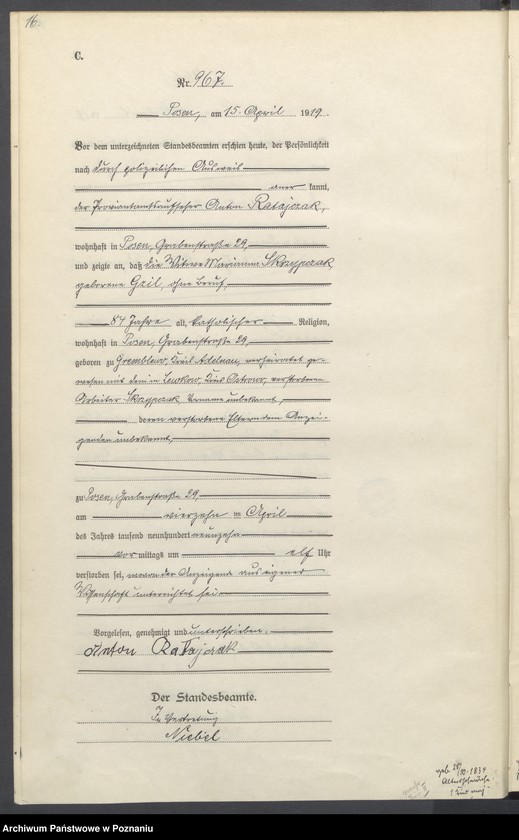 16.
C.
Nr. 967.
Posen, am 15. April 1919.
Vor dem unterzeichneten Standesbeamten erschien heute, der Persönlichkeit
nach durch polizeilichen Ausweis
aner kannt,
der Proviantamtsaufseher Anton Ratajczak,
wohnhaft in Posen, Grabenstraße 29,
und zeigte an, daß die Witwe Marianna Skrzypczak
geborene Gzil, ohne Beruf,
84 Jahre alt, katholischer Religion,
wohnhaft in Posen, Grabenstraße 29,
geboren zu Kreis Adelnau, verheiratet ge-
wesen mit dem in Kreis Ostrowo, verstorbenen
Arbeiter Skrzypczak Vorname unbekannt,
deren verstorbene Eltern dem Anzei-
genden unbekannt,
zu Posen, Grabenstraße 29,
am vierzehn en April
des Jahres tausend neunhundert neunzehn
vor mittags um elf Uhr
verstorben sei, wovon der Anzeigende aus eigener
Wissenschaft unterrichtet sei.
Vorgelesen, genehmigt und unterschrieben.
Anton Ratajczak
Der Standesbeamte.
In Vertretung
Niebel
geb. 1834
1 Kind
Archiwum Państwowe w Poznaniu